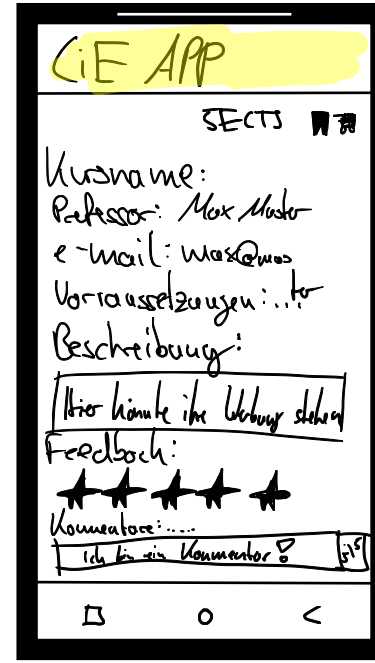 CiE APP
5ECTS
Kursname:
Professor: Max Muster
e-mail: max@mus
Vorraussetzungen:...ter
Beschreibung:
Hier könnte ihre Werbung stehen
Feedback:
Kommentare:.....
ich bin ein Kommentar! 5/5